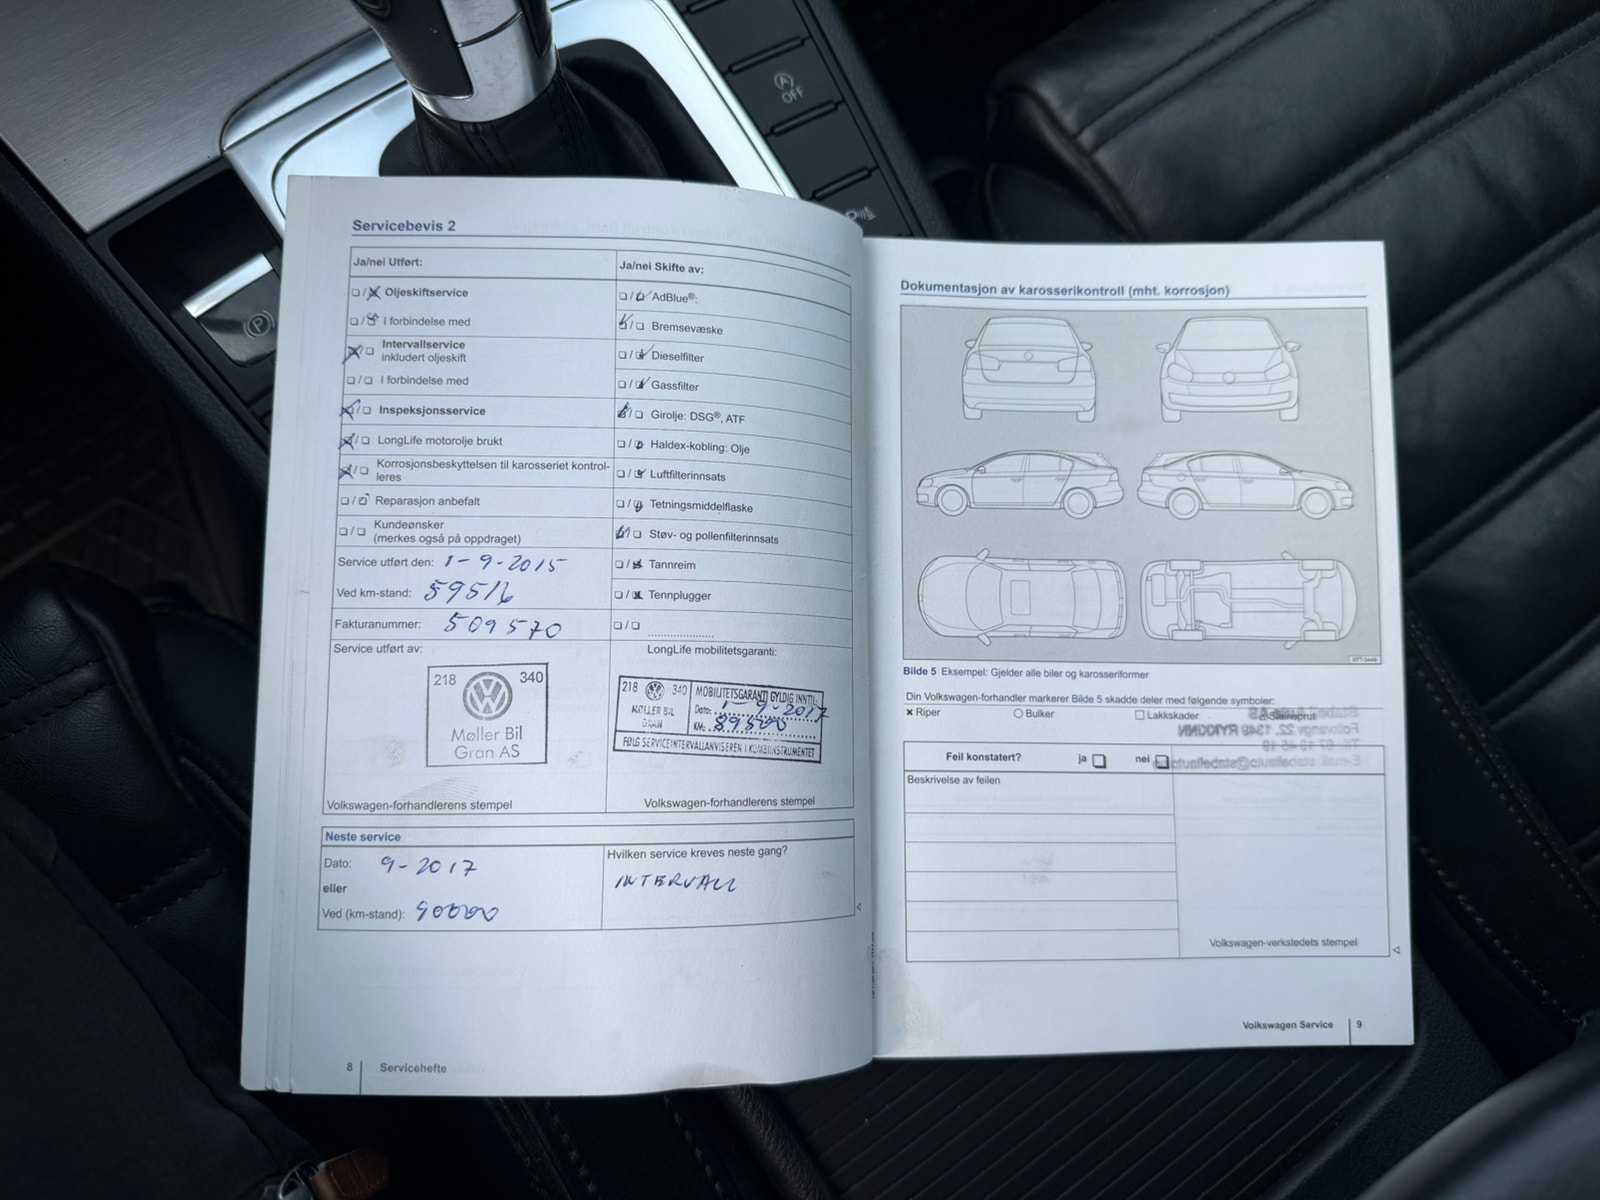 A
OFF
P
P
Servicebevis 2
Ja/nei Utført:
☐/☒ Oljeskiftservice
☐/☒ I forbindelse med
☒/☐ Intervallservice
inkludert oljeskift
☐/☐ I forbindelse med
☒/☐ Inspeksjonsservice
☒/☐ LongLife motorolje brukt
☒/☐ Korrosjonsbeskyttelsen til karosseriet kontrol-
leres
☐/☒ Reparasjon anbefalt
☐/☐ Kundeønsker
(merkes også på oppdraget)
Service utført den: 1-9-2015
Ved km-stand: 59516
Fakturanummer: 509570
Service utført av:
218 340
Møller Bil
Gran AS
Volkswagen-forhandlerens stempel
Ja/nei Skifte av:
☐/☒ AdBlue®:
☒/☐ Bremsevæske
☐/☒ Dieselfilter
☐/☒ Gassfilter
☒/☐ Girolje: DSG®, ATF
☐/☒ Haldex-kobling: Olje
☐/☒ Luftfilterinnsats
☐/☒ Tetningsmiddelflaske
☒/☐ Støv- og pollenfilterinnsats
☐/☒ Tannreim
☐/☒ Tennplugger
☐/☐ ....................
LongLife mobilitetsgaranti:
218 340 MOBILITETSGARANTI GYLDIG INNTIL:
MØLLER BIL Dato: 1-9-2017
GRAN KM: 89500
FØLG SERVICEINTERVALLANVISEREN I KOMBIINSTRUMENTET
Volkswagen-forhandlerens stempel
Neste service
Dato: 9-2017
eller
Ved (km-stand): 90000
Hvilken service kreves neste gang?
INTERVALL
8 Servicehefte
Dokumentasjon av karosserikontroll (mht. korrosjon)
Bilde 5 Eksempel: Gjelder alle biler og karosseriformer
Din Volkswagen-forhandler markerer Bilde 5 skadde deler med følgende symboler:
✖ Riper ○ Bulker □ Lakkskader Steinsprut
Feil konstatert? ja ☐ nei ☐
Beskrivelse av feilen
Volkswagen-verkstedets stempel
Volkswagen Service 9